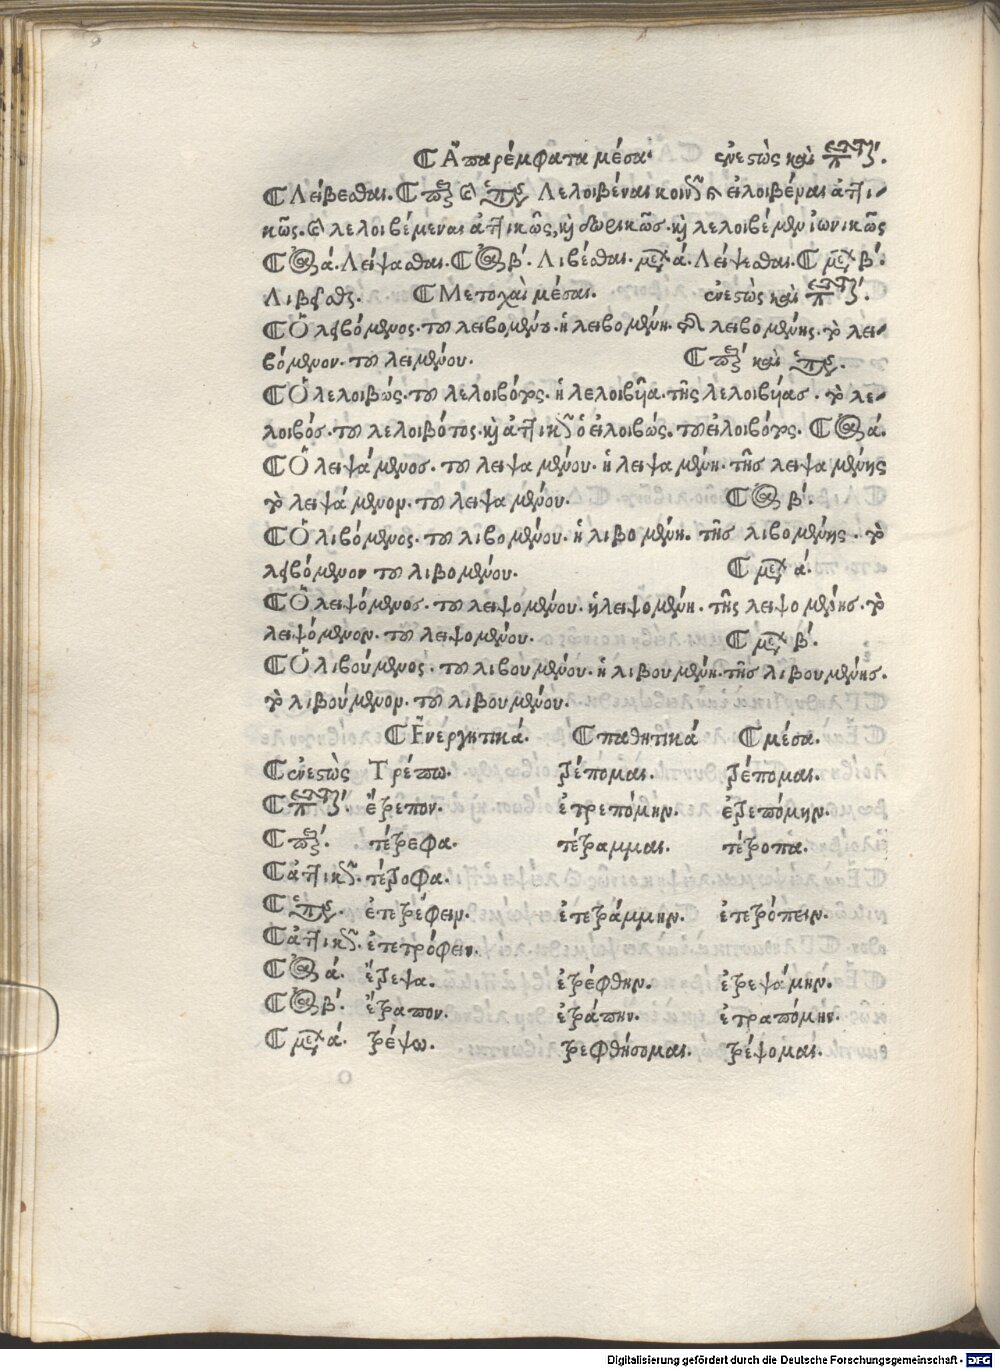 Ἀπαρέμφατα μέσα· ἐνεστὼς καὶ
Λείβεσθαι. Λελοιβέναι κοινῶς εἰλοιβέναι ἀττι-
κῶς. λελοιβέμεναι ἀττικῶς, κὴ δωρικῶσ. κὴ λελοιβέμεν ἰωνικῶς
ά. Λείψασθαι. β΄. Λιβέσθαι. ά. Λείψεσθαι. β΄.
Μετοχαὶ μέσαι. ἐνεστὼς καὶ
Ὁ λειβόμενος. τοῦ λειβομένου. ἡ λειβομένη. λειβομένης. τὸ λει-
βόμενον. τοῦ λειμένου. καὶ
Ὁ λελοιβώς. τοῦ λελοιβότος. ἡ λελοιβῆα. τῆς λελοιβήασ. τὸ λε-
λοιβόσ. τοῦ λελοιβότος. κὴ ἀττικῶς ὁ εἰλοιβώς. τοῦ εἰλοιβότος. ά.
Ὁ λειψάμενοσ. τοῦ λειψαμένου. ἡ λειψαμένη. τῆσ λειψαμένης
τὸ λειψάμενον. τοῦ λειψαμένου. β΄.
Ὁ λιβόμενος. τοῦ λιβομένου. ἡ λιβομένη. τῆσ λιβομένης. τὸ
λιβόμενον τοῦ λιβομένου. ά.
Ὁ λειψόμενοσ. τοῦ λειψομένου. ἡ λειψομένη. τῆς λειψομένησ. τὸ
λειψόμενον. τοῦ λειψομένου. β΄.
Ὁ λιβούμενος. τοῦ λιβουμένου. ἡ λιβουμένη. τῆσ λιβουμένησ.
τὸ λιβούμενον. τοῦ λιβουμένου.
Ἐνεργητικά. παθητικά μέσα.
ἐνεστὼς Τρέπω. τρέπομαι. τρέπομαι.
ἔτρεπον. ἐτρεπόμην. ἐτρεπόμην.
τέτρεφα. τέτραμμαι. τέτροπα.
ἀττικῶς. τέτροφα.
ἐτετρέφειν. ἐτετράμμην. ἐτετρόπειν.
ἀττικῶς. ἐτετρόφειν.
ά. ἔτρεψα. ἐτρέφθην. ἐτρεψάμην.
β΄. ἔτραπον. ἐτράπην. ἐτραπόμην.
ά. τρέψω. τρεφθήσομαι. τρέψομαι.
Digitalisierung gefördert durch die Deutsche Forschungsgemeinschaft - DFG